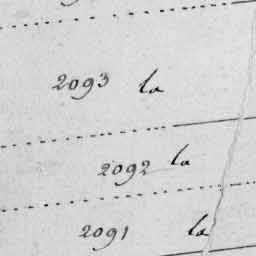 2093 la
2092 la
2091 la